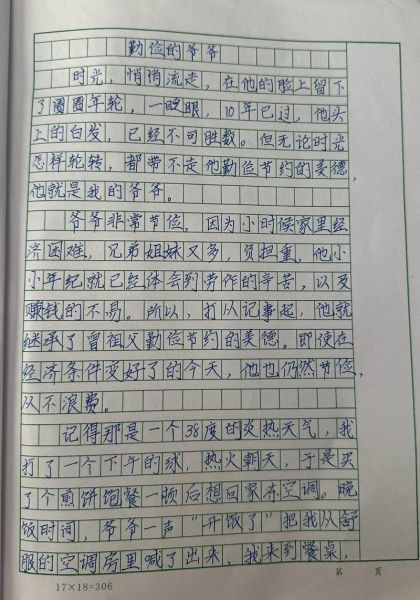 勤俭的爷爷
时光，悄悄流走，在他的脸上留下
了圈圈年轮，一晚眼，10年已过，他头
上的白发，已经不可胜数。但无论时光
怎样轮转，都带不走他勤俭节约的美德，
他就是我的爷爷。
爷爷非常节俭，因为小时候家里经
济困难，兄弟姐妹又多，负担重，他小
小年纪就已经体会到劳作的辛苦，以及
赚钱的不易。所以，打从记事起，他就
继承了曾祖父勤俭节约的美德。即使在
经济条件变好了的今天，他也仍然节俭，
从不浪费。
记得那是一个38度的炎热天气，我
打了一个下午的球，热火朝天，于是买
了个煎饼饱餐一顿后想回家冻空调。晚
饭时间，爷爷一声“开饭了”把我从舒
服的空调房里喊了出来，我来到餐桌，
第 页
17×18=306